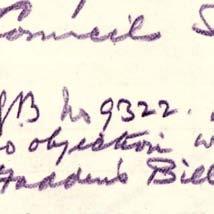 Council S
GB No 9322.
no objection w
Fadden's Bill